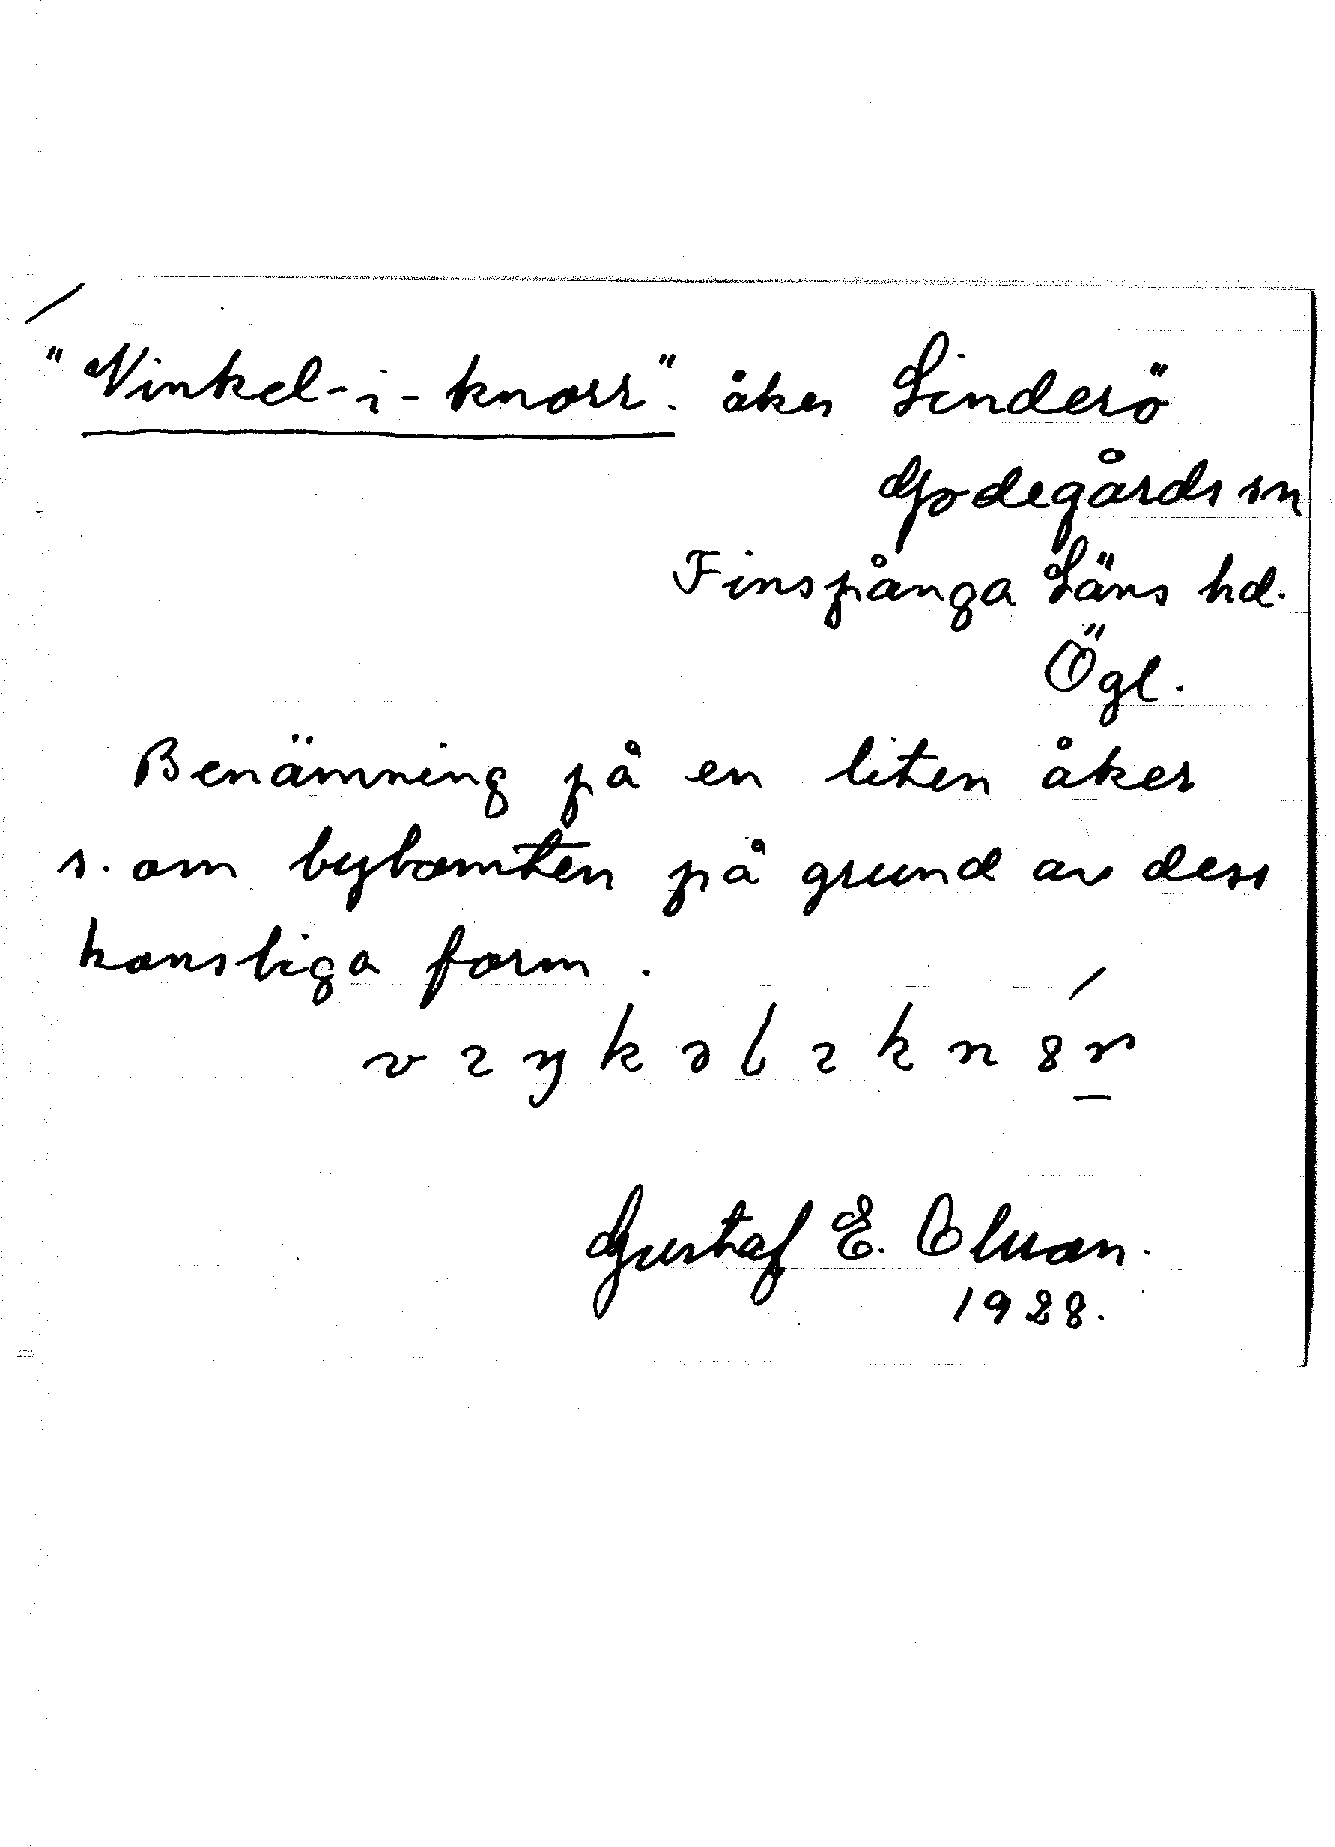 "Vinkel-i-knorr". åker Linderö
Godegårds sn
Finspånga Läns hd.
Ögl.
Benämning på en liten åker
s. om bytomten på grund av dess
konstiga form.
Gustaf E. Olsson.
1928.